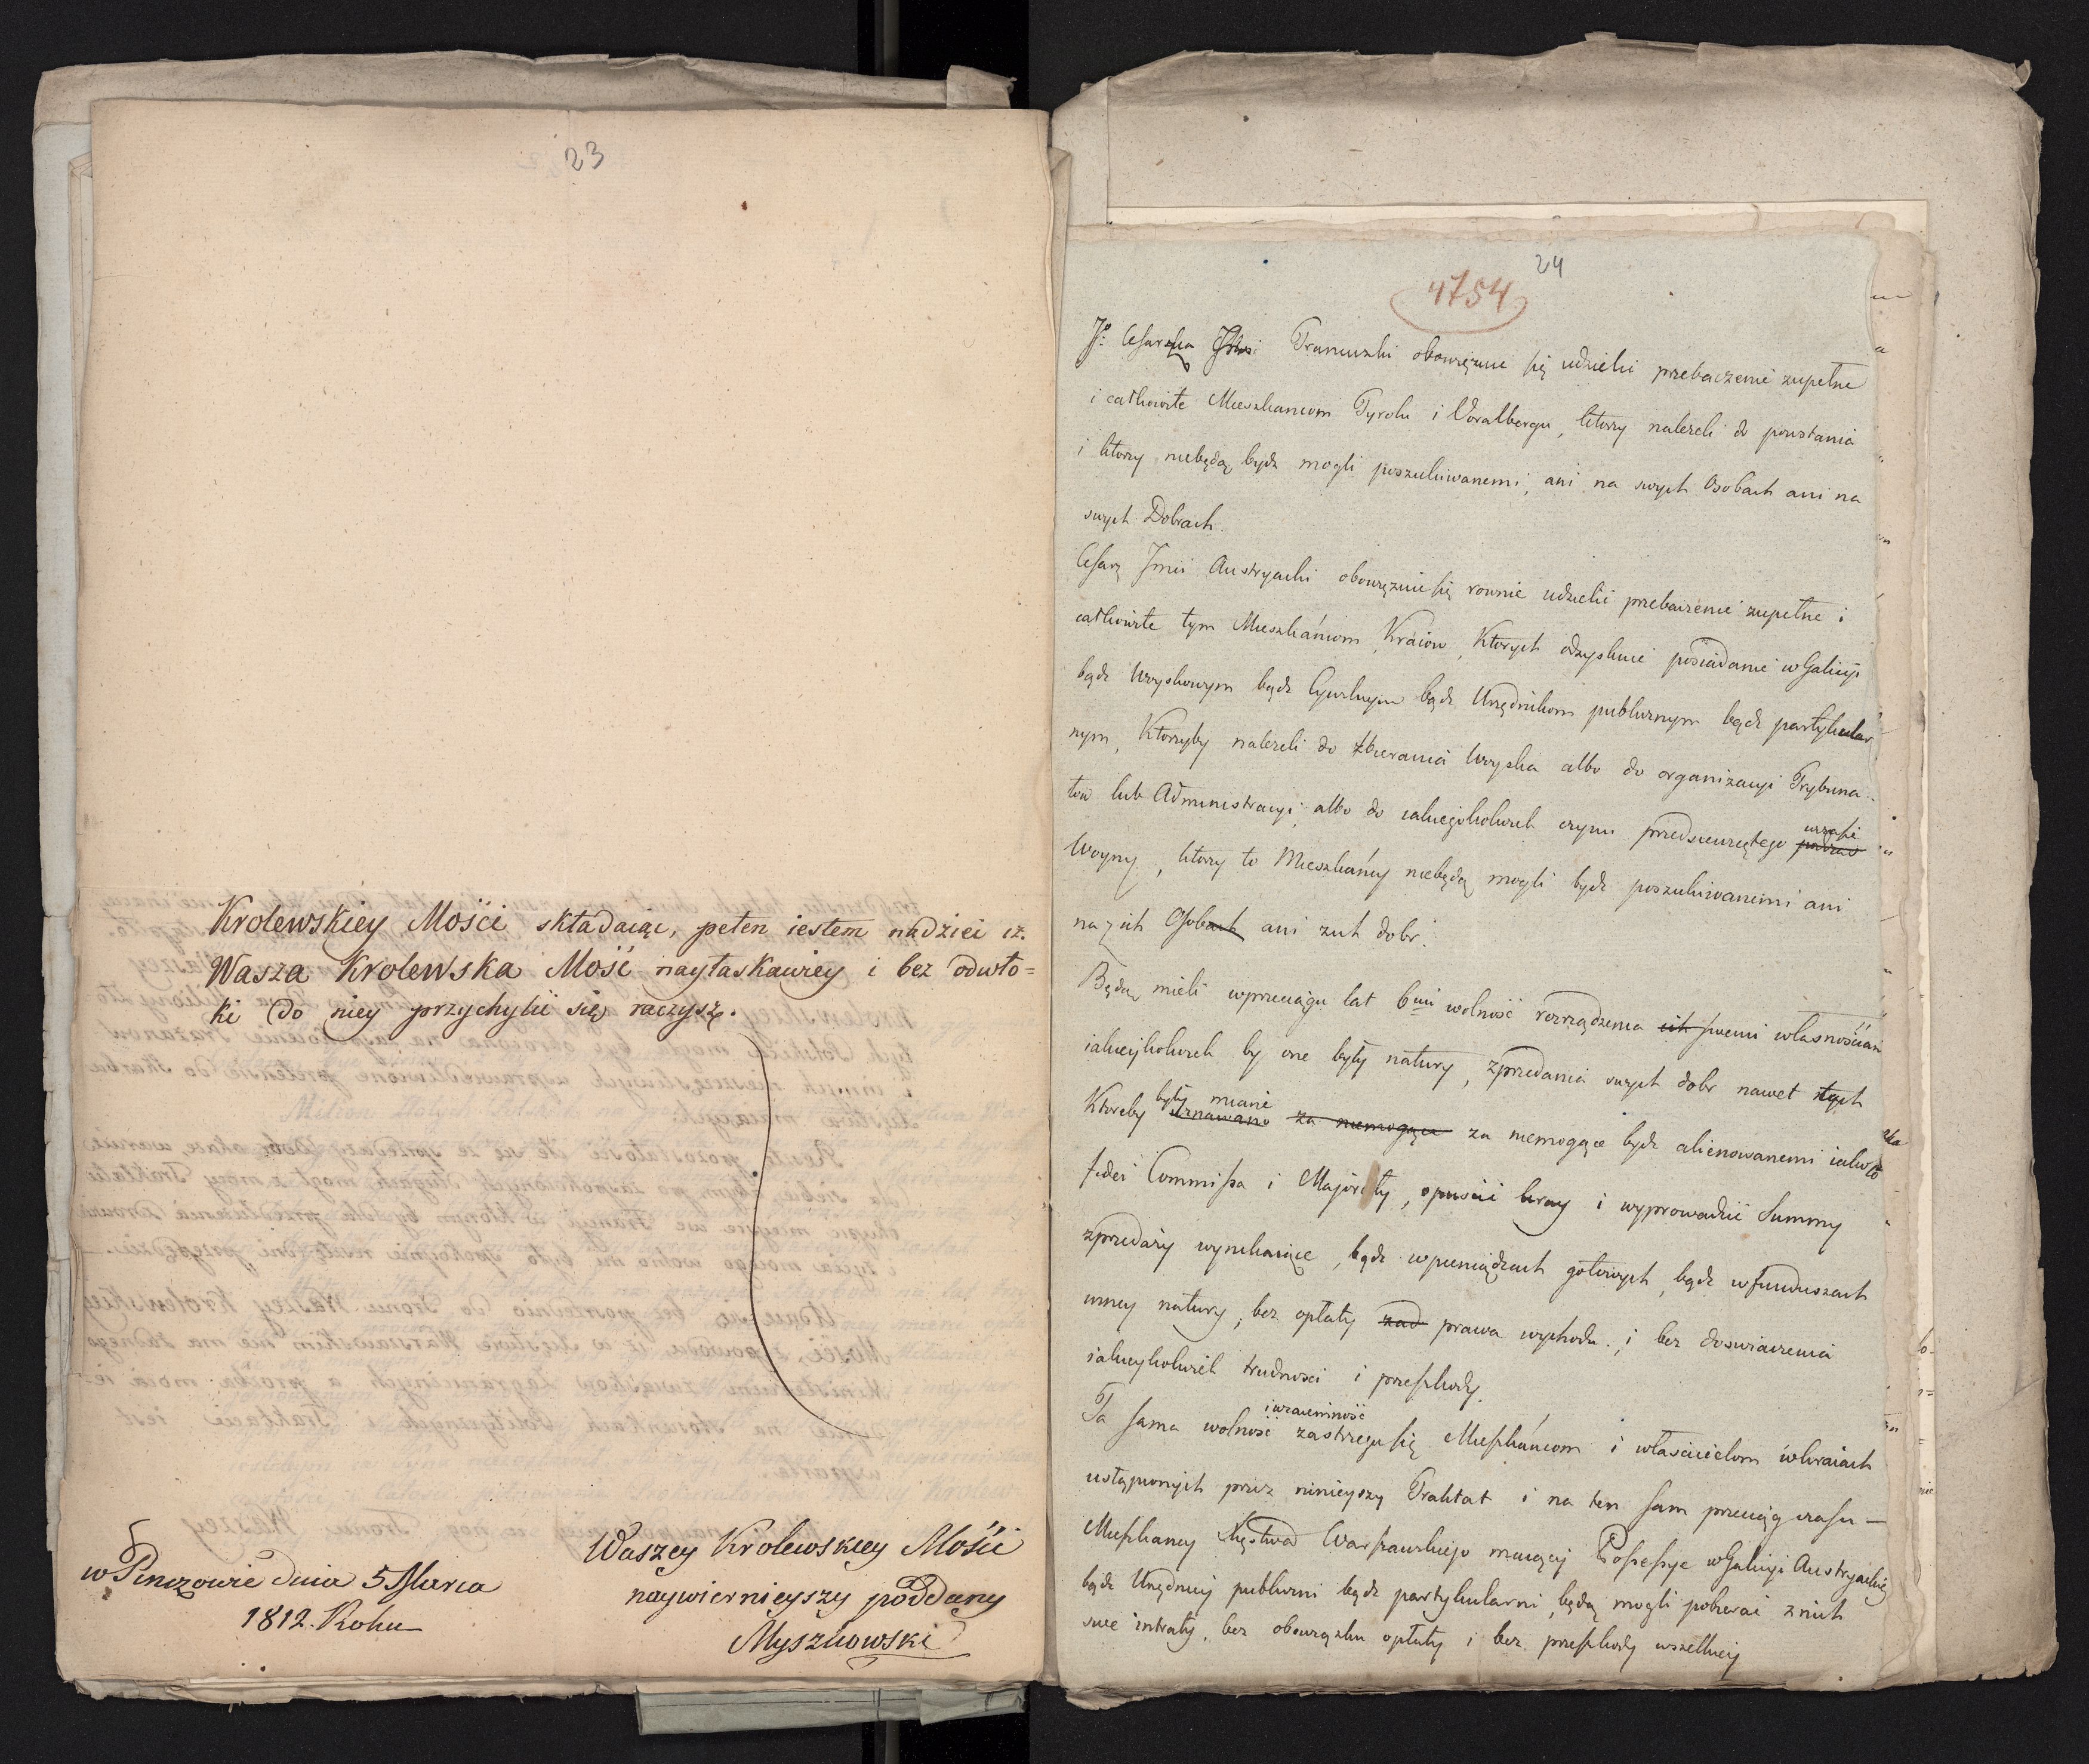 23
Krolewskiey Mości składaiąc, pełen iestem nadziei iż.
Wasza Krolewska Mość nayłaskawiey i bez odwło=
ki do niey przychylić się raczysz.
w Pinczowie dnia 5 Marca
1812. Roku
Waszey Krolewskiey Mości
naywiernieyszy poddany
Myszkowski
24
4754
Cesarz Francuzki obowięzuie się udzielić przebaczenie zupełne
i całkowite Mieszkancom Tyrolu i Voralbergu, ktorzy należeli do powstania
i ktorzy niebędą bydz mogli poszukiwanemi, ani na swych Osobach ani na
swych Dobrach.
Cesarz Jmci Austryacki obowięzuie się rownie udzielić przebaczenie zupełne i
całkowite tym Mieszkańcom Kraiow, Ktorych odzyskuie posiadanie w Galicyi
bądz Woyskowym bądz Cywilnym bądz Urzędnikom publicznym bądz partykular
nym, Ktorzyby należeli do zbierania Woyska albo do organizacyi Trybuna
low lub Administracyi albo do iakiegokolwiek czynu przedsiewziętego podczas
w czasie
Woyny, ktorzy to Mieszkańcy niebędą mogli bydz poszukiwanemi ani
na ich Osobach ani z ich dobr.
Będą mieli w przeciągu lat 6ciu wolność rozrządzenia ich swemi własnościami
iakieykolwiek by one były natury, zprzedania swych dobr nawet tych
były miane
Ktoreby uznawano za niemogące za niemogące bydz alienowanemi iako to
fidei Commissa i Majoraty, opuścić kray i wyprowadzić Summy
zprzedaży wynikaiące, bądz w pieniądzach gotowych, bądz w funduszach
inney natury, bez opłaty żad prawa wychodu, i bez doswiadczenia
iakieykolwiek trudności i przeszkody.
i wzaiemność
Ta sama wolność zastrzega się Mieszkańcom i właścicielom w kraiach
ustąpionych przez ninieyszy Traktat i na ten sam przeciąg czasu —
Mieszkancy Xięstwa Warszawskiego maiący Possessye w Galicyi Austryackiey
bądz Urzędnicy publiczni bądz partykularni, będą mogli pobierać z nich
swe intraty, bez obowiązku opłaty i bez przeszkody wszelkiey